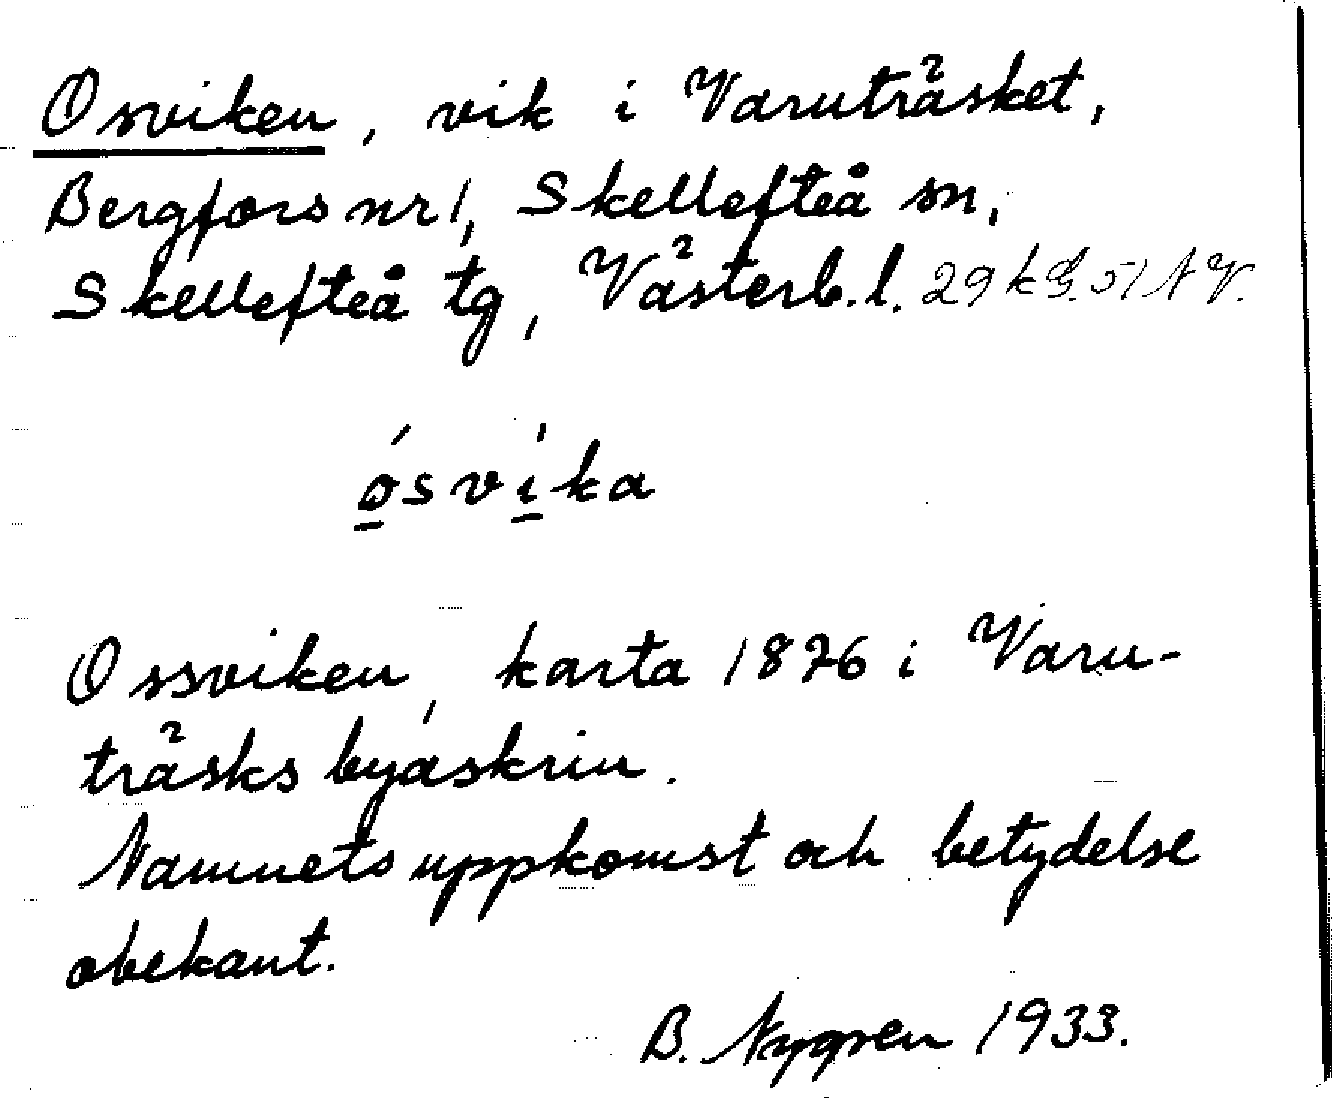 Osviken, vik i Varuträsket,
Bergfors nr 1, Skellefteå sn,
Skellefteå tg, Västerb. l. 29 k S. 51 N V.
ó̱sví̱ka
Ossviken, karta 1876 i Varu-
träsks byaskrin.
Namnets uppkomst och betydelse
obekant.
B. Nygren 1933.